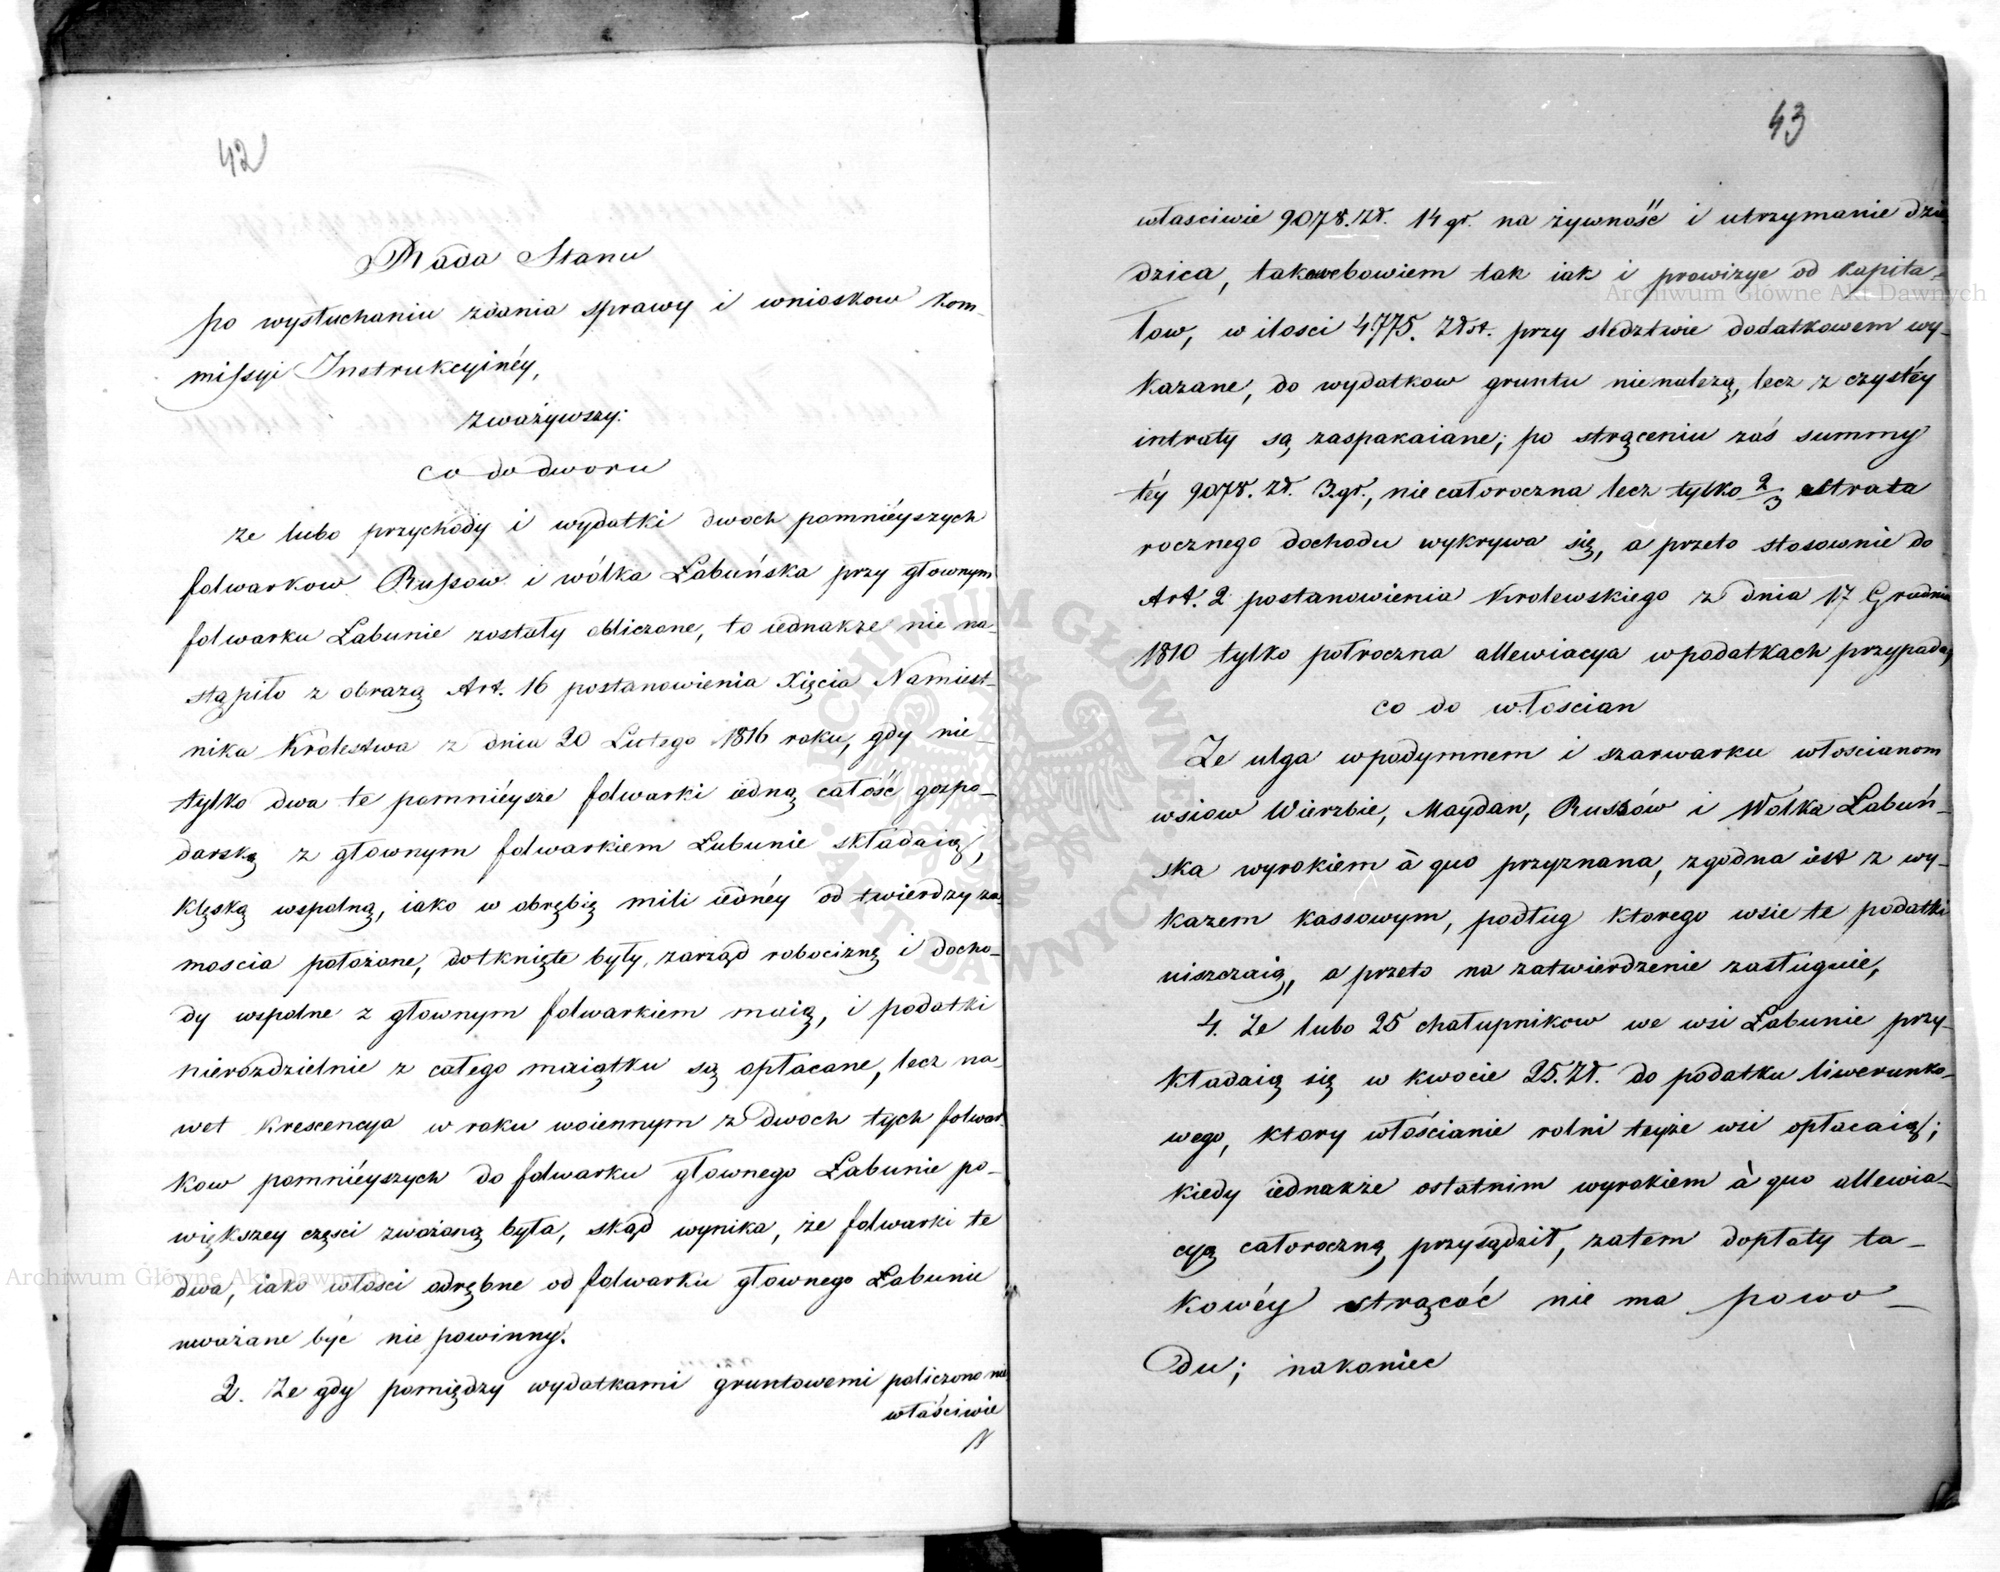 42
Rada Stanu
po wysłuchaniu zdania sprawy i wnioskow Kom-
missyi Instrukcyinéy,
zważywszy:
co do dworu
że lubo przychody i wydatki dwoch pomnieyszych
folwarkow Russow i wólka Łabuńska przy głownym
folwarku Łabunie zostały obliczone, to iednakże nie na-
stąpiło z obrazą Art. 16 postanowienia Xięcia Namiest-
nika Krolestwa z dnia 20 Lutego 1816 roku, gdy nie-
tylko dwa te pomnieysze folwarki iedną całość gospo-
darską z głownym folwarkiem Łabunie składaią,
klęską wspolną, iako w obrębię mili iednéy od twierdzy za-
moscia położone, dotknięte były, zarząd robociznę i docho-
dy wspolne z głownym folwarkiem maią, i podatki
nierozdzielnie z całego maiątku są opłacane, lecz na-
wet krescencya w roku woiennym z dwoch tych folwar
kow pomniéyszych do folwarku głownego Łabunie po-
większey części zwożoną była, skąd wynika, że folwarki te
dwa, iako włosci odrębne od folwarku głownego Łabunie
uważane być nie powinny.
2. Że gdy pomiędzy wydatkami gruntowemi policzono nie
właściwie
43
własciwie 9078. Zł. 14 gr. na żywność i utrzymanie dzie
dzica, takowe bowiem tak iak i prowizye od kapita-
łow, w ilosci 4775. Zł. przy sledztwie dodatkowem wy-
kazane, do wydatkow gruntu nie należą, lecz z czystéy
intraty są zaspakaiane; po strąceniu zaś summy
téy 9078. Zł. 3 gr., nie całoroczna lecz tylko 2/3 strata
rocznego dochodu wykrywa się, a przeto stosownie do
Art. 2 postanowienia Krolewskiego z dnia 17 Grudnia
1810 tylko połroczna allewiacya w podatkach przypada,
co do włoscian
Ze ulga w podymnem i szarwarku włoscianom
wsiow Wierzbie, Maydan, Russów i Wolka Łabuń-
ska wyrokiem à quo przyznana, zgodna iest z wy-
kazem kassowym, podług ktorego wsie te podatki
uiszczaią, a przeto na zatwierdzenie zasługuie,
4. Że lubo 25 chałupnikow we wsi Łabunie przy-
kładaią się w kwocie 25. Zł. do podatku liwerunko-
wego, ktory włościanie rolni teyże wsi opłacaią;
kiedy iednakże ostatnim wyrokiem à quo allewia-
cyą całoroczną przysądził, zatem dopłaty ta-
kowéy strącać nie ma powo-
du; nakoniec
Archiwum Główne Akt Dawnych
Archiwum Główne Akt Dawnych
ARCHIWUM GŁÓWNE AKT DAWNYCH